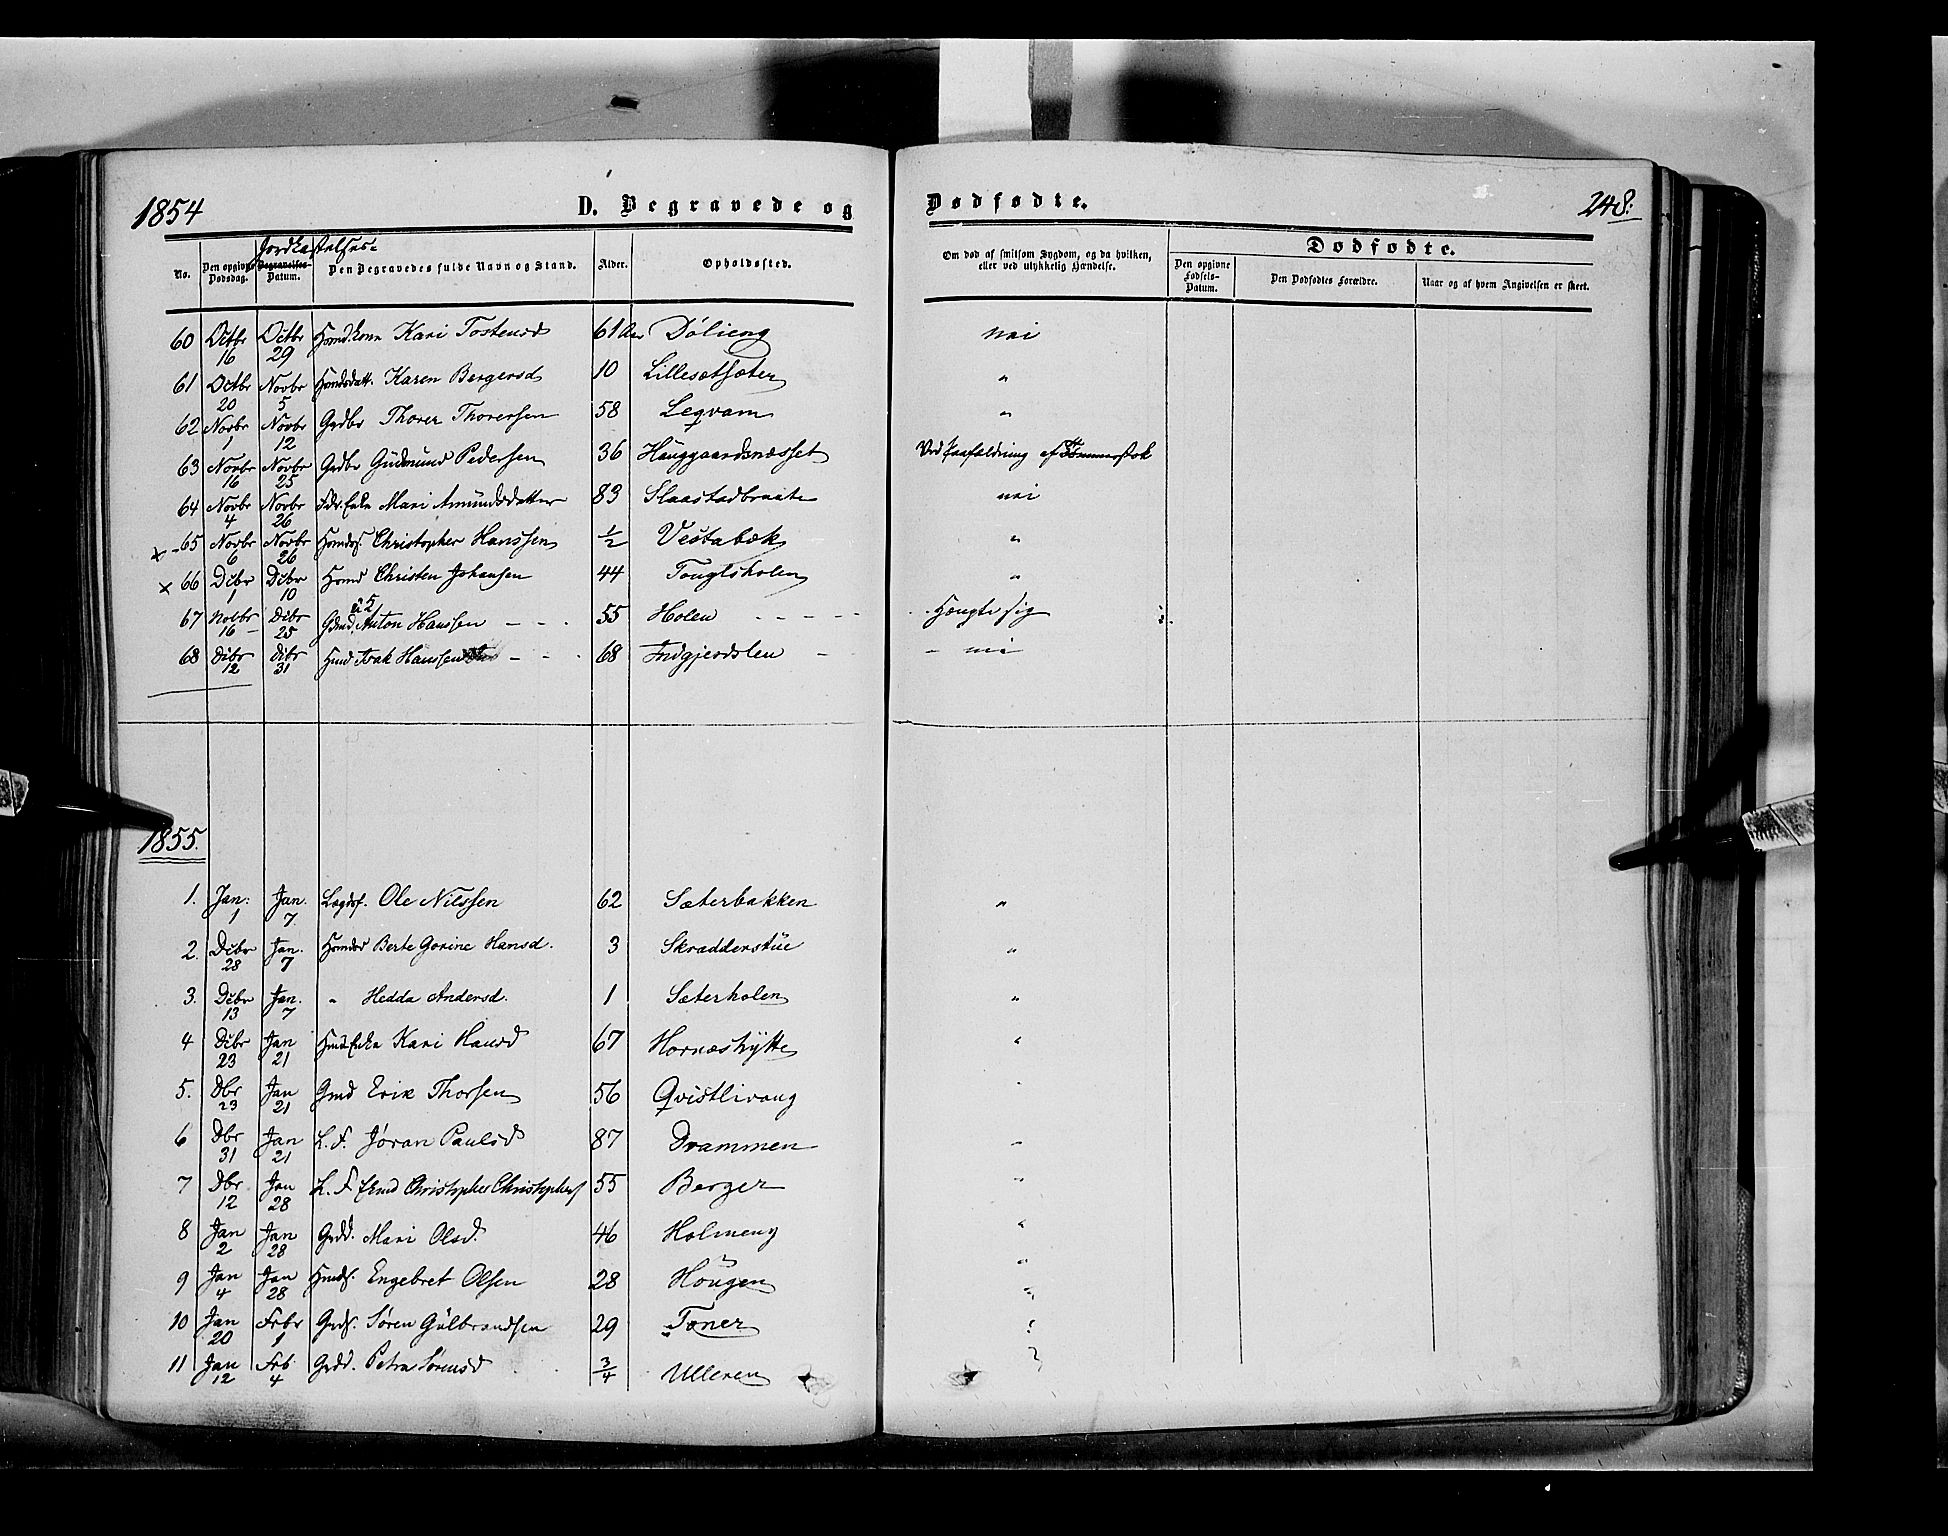 1854 D. Begravede og Dødfødte. 248.
Jordkastelses-
No. Den opgivne Dødsdag. Begravelses-Datum. Den Begravedes fulde Navn og Stand. Alder. Opholdssted. Om død af smitsom Sygdom, og da hvilken, eller ved ulykkelig Hændelse. Dødfødte.
Den opgivne Fødsels-Datum. Den Dødfødtes Forældre. Naar og af hvem Angivelsen er skeet.
60 Octbr 16 Octbr 29 Kari Tostensd 61 Aar Dølieng nei
61 Octbr 20 Novbr 5 Karen Bergersd 10 Lillesætsæter "
62 Novbr 1 Novbr 12 Grdbr Thorer Thorersen 58 Leqvam "
63 Novbr 16 Novbr 25 Grdbr Gudmund Pedersen 36 Hauggaardsnæsset Ved Paafaldning af Tømmerstok
64 Novbr 4 Novbr 26 Enke Mari Amundsdatter 83 Slaastadbraate nei
x - 65 Novbr 6 Novbr 26 Christopher Hanssen 1/2 Vestabæk "
x 66 Dcbr 1 Dcbr 10 Hsmd Christen Johansen 44 Fouglsholen "
67 Novbr 16 Dcbr 25 Anton Hanssen 55 Holen Hængte sig
68 Dcbr 12 Dcbr 31 Hmd Isak Hanssen 68 Indgjerdslen nei
1855.
1. Jan: 1 Jan. 7. Lægdsl. Ole Nilssen 62 Sæterbakken "
2. Dcbr 28 Jan. 7 Berte Gorine Hansd. 3 Skrædderstue "
3. Dcbr 13 Jan. 7 " Hedda Andersd. 1 Sæterholen "
4 Dcbr 23 Jan 21 Kari Hansd 67 Hornæshytte "
5. Dbr 23 Jan 21 Gmd Erik Thorsen 56 Qvistlivang "
6 Dbr 31 Jan 21 L. F. Jøran Paulsd 87 Drammen "
7 Dbr 12 Jan 28 L. F. Christopher Christophers 55 Berger "
8 Jan 2 Jan 28 Grdd. Mari Olsd. 46 Holmeng "
9 Jan 4 Jan 28 Hmds. Engebret Olsen 28 Hougen "
10 Jan 20 Frbr 1 Grds. Søren Gulbrandsen 29 Toner
11 Jan 12 Frb 4 Grdd. Petra Sørensd 3/4 Ulleren